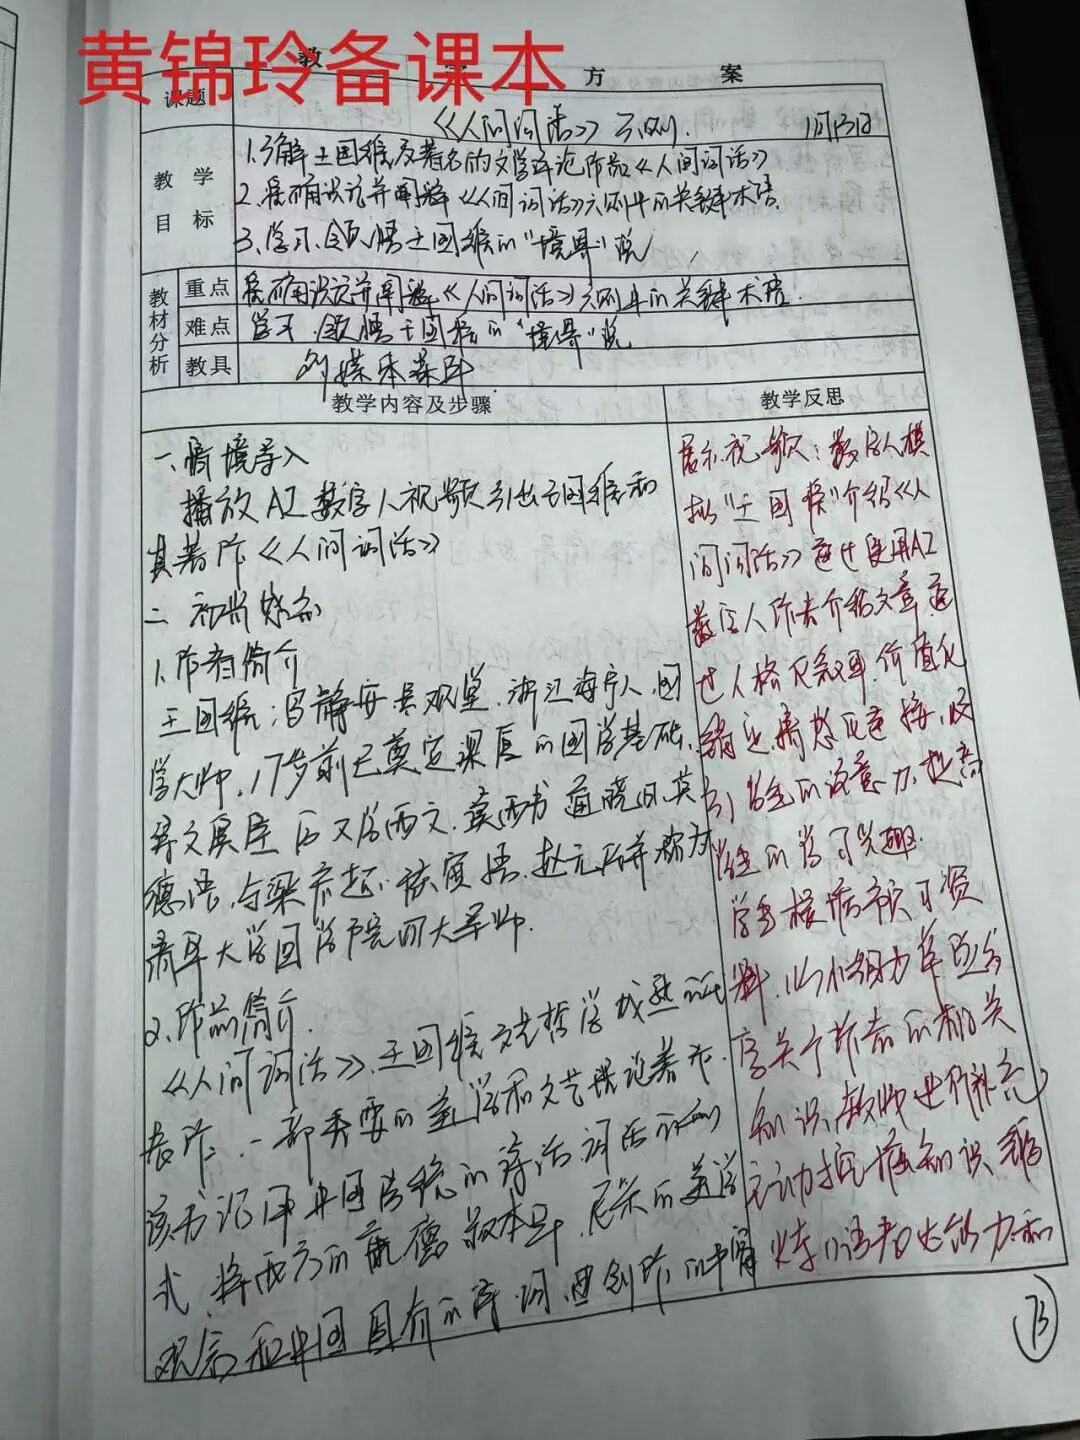 黄锦玲备课本
教 方 案
课题
《人间词话》三则.
教学目标
1.了解王国维及著名的文学评论作品《人间词话》
2.准确识记并阐释《人间词话》三则中的关键术语.
3.学习、领悟王国维的“境界”说
教材分析
重点
准确识记并阐释《人间词话》三则中的关键术语.
难点
学习、领悟王国维的“境界”说
教具
多媒体课件
教学内容及步骤
一、情境导入
播放AI数字人视频引出王国维和
其著作《人间词话》
二、
1.作者简介
王国维:字静安号观堂.浙江海宁人.国
学大师,17岁前已奠定深厚的国学基础.
后又学西文.读西书通晓日、英
德语.与梁启超、陈寅恪、赵元任并称为
清华大学国学院四大导师.
2.作品简介.
《人间词话》.王国维文艺哲学成熟的代
表作.一部重要的美学和文艺理论著作.
该书沿用中国传统的诗话词话的
式.将西方的康德、叔本华、尼采的美学
观念和中国固有的诗、词、曲创作的
教学反思
展示视频:数字人模
拟“王国维”介绍《人
间词话》通过使用AI
数字人作者介绍文章.通
过人格
吸
引学生的注意力.提高
学生的学习兴趣.
学生根据预习资
料.以小组为单位
有关于作者的相关
知识,教师进行补充
主动